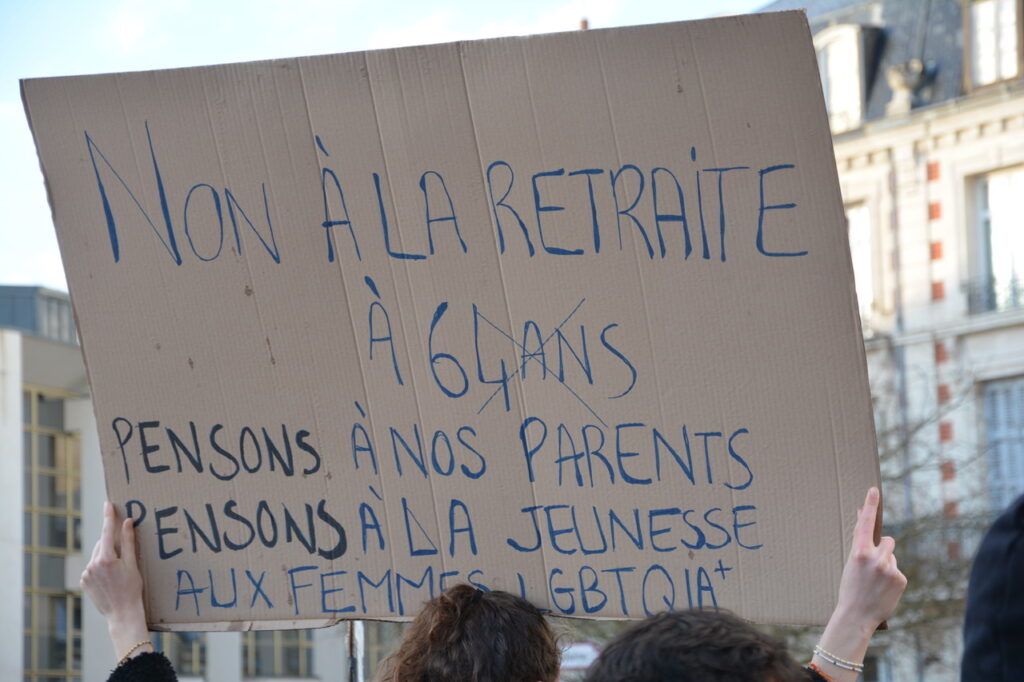 NON À LA RETRAITE
À 64 ANS
PENSONS À NOS PARENTS
PENSONS À LA JEUNESSE
AUX FEMMES LGBTQIA+